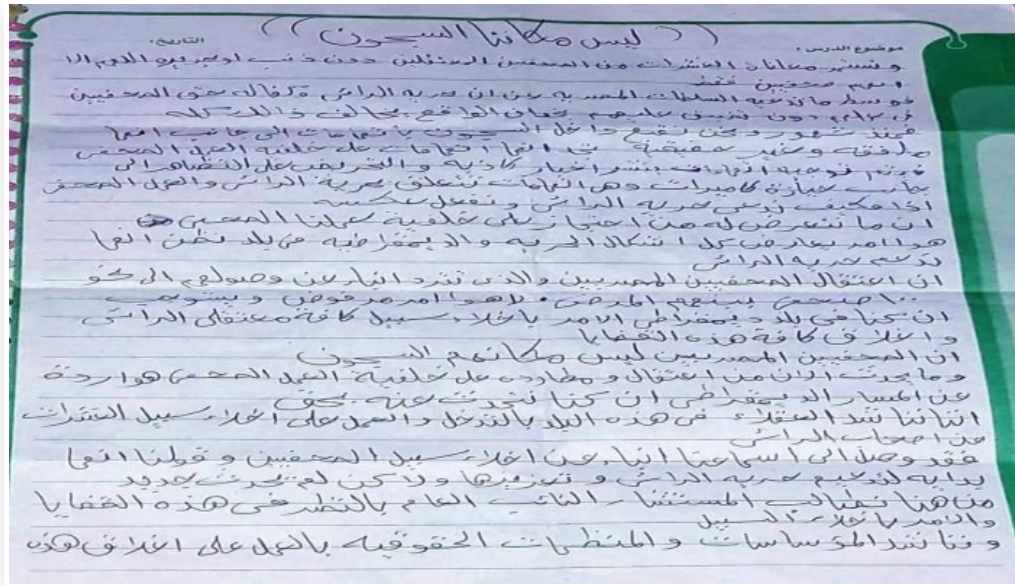 (( ليس مكاننا السجون ))
موضوع الدرس : التاريخ:
وتستمر معاناة العشرات من الصحفيين المعتقلين دون ذنب او جريره اللهم الا
انهم صحفيين فقط
فوسط ما تدعيه السلطات المصريه عن ان حرية الرائ مكفاله حتى الصحفيين
في عملهم دون تضييق عليهم الواقع يخالف ذالك كله
فمنذ شهور ونحن نقبع داخل السجون باتهامات الى جانب انها
ملفقه وغير حقيقية انها اتهامات على خلفية العمل الصحفى
فيتم توجيه اتهامات بنشر اخبار كاذبه والتحريض على التظاهر الى
جانب حيازة كاميرات وهى اتهامات تتعلق بحرية الرائ والعمل الصحفى
اذا فكيف ندعى حرية الرائ ونفعل عكسه
ان ما نتعرض له من احتجاز على خلفية عملنا الصحفى
هوا امر يعارض كل اشكال الحريه والديمقراطيه فى بلد نظن انها
تدعم حرية الرائ
ان اعتقال الصحفيين المصريين والذى تترد انباء عن وصولهم الى نحو
صحفى بينهم المرضى لاهوا امر مرفوض ويستوجب
ان كنا فى بلد ديمقراطى الامر باخلاء سبيل كافة معتقلى الرائ
واغلاق كافة هذه القضايا
ان الصحفيين المصريين ليس مكانهم السجون
وما يحدث الان من اعتقال و مطارده على خلفية العمل الصحفى هوا ردة
عن المسار الديمقراطى ان كنا نتحدث عنه بحق
اننا نناشد العقلاء فى هذه البلد بالتدخل والعمل على اخلاء سبيل العشرات
من اصحاب الرائ
فقد وصل الى اسماعنا انباء عن اخلاء سبيل الصحفيين وقولنا انها
بدايه لتدعيم حرية الرائ و تعزيزها ولاكن لم يحدث جديد
من هنا نطالب المستشار النائب العام بالنظر فى هذه القضايا
والامر باخلاء السبيل
ونناشد المؤسسات والمنظمات الحقوقيه بالعمل على اغلاق هذه